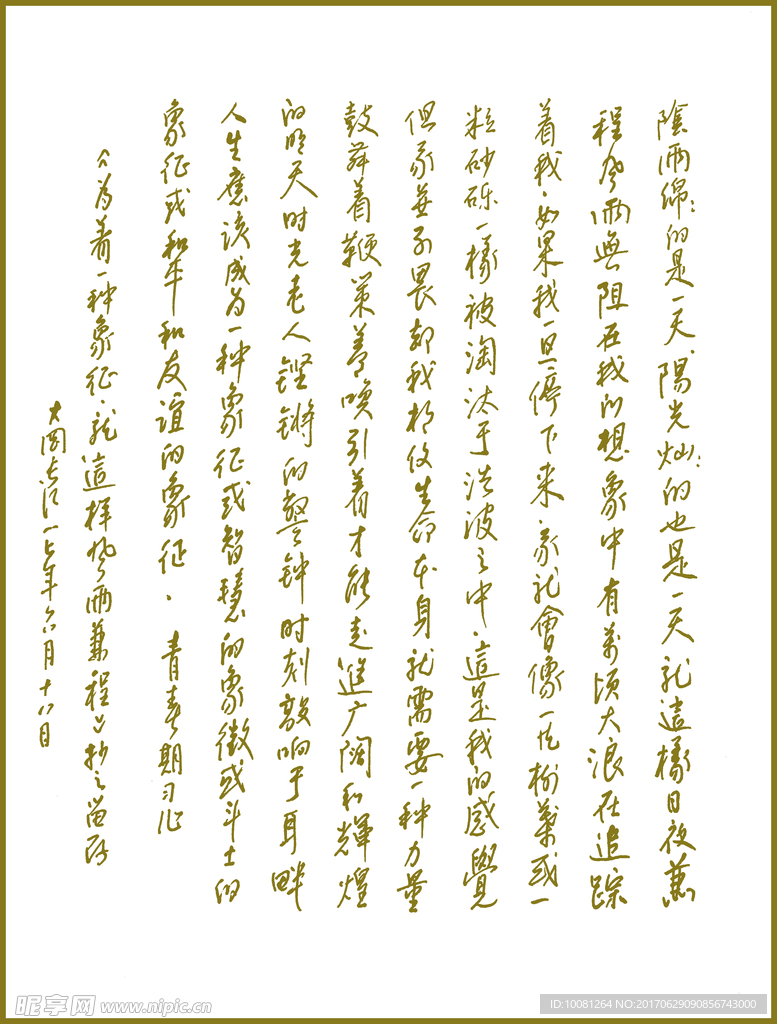 陰雨綿:的是一天,陽光灿:的也是一天就這樣日夜蒹
程風雨無阻在我的想象中有萬頃大浪在追踪
着我.如果我一旦停下来.我就會像一片树葉或一
粒砂砾一樣被淘汰于洪波之中.這是我的感覺
但我並不畏却我相仗生命本身就需要一种力量
鼓舞着鞭策着唤引着才能走進广阔和輝煌
的明天时光老人铿锵的警钟时刻敲响于耳畔
人生應该成为一种象征或智慧的象徵或斗士的
象征或和平和友谊的象征. 青春期习作
《为着一种象征.就這样风雨兼程》抄之留存
大閣長江一七年六月十八日
昵享网 www.nipic.cn
ID:10081264 NO:20170629090856743000